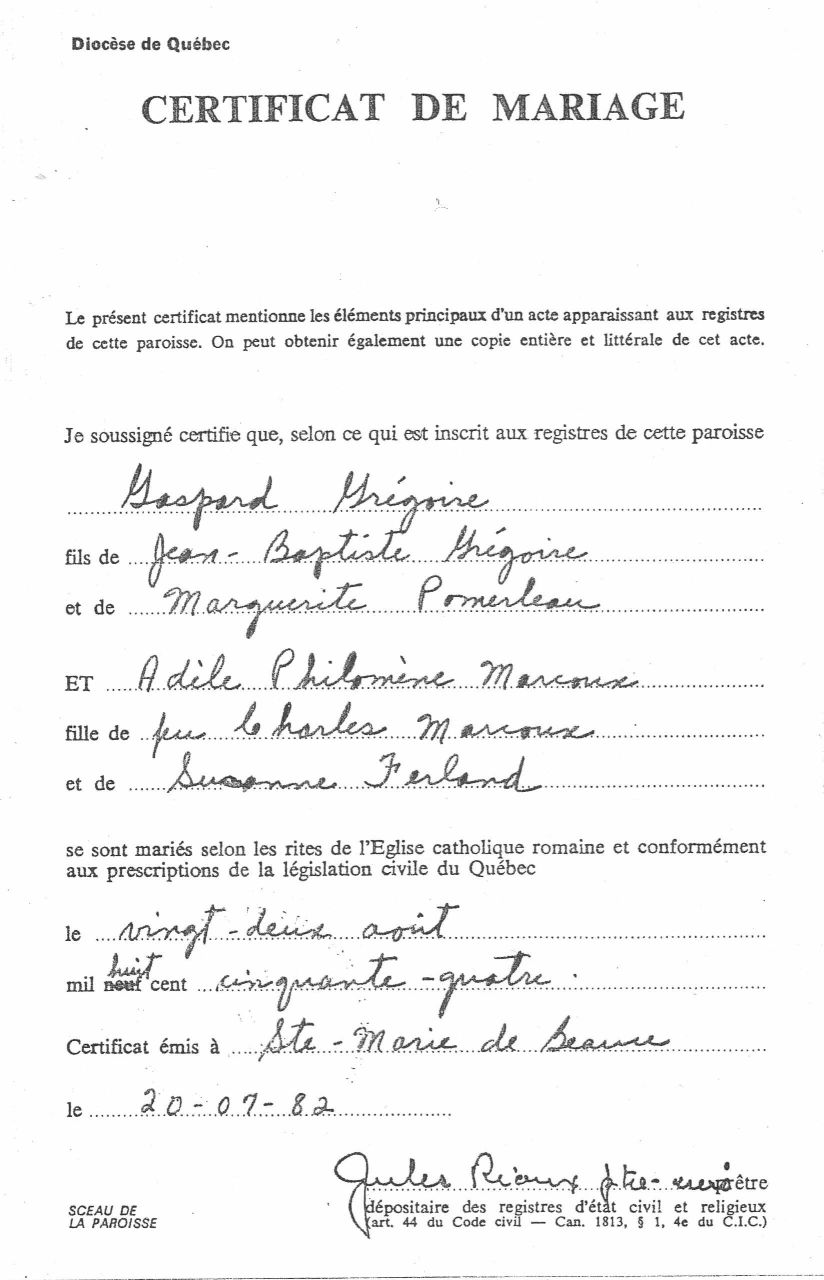 Diocèse de Québec
CERTIFICAT DE MARIAGE
Le présent certificat mentionne les éléments principaux d'un acte apparaissant aux registres
de cette paroisse. On peut obtenir également une copie entière et littérale de cet acte.
Je soussigné certifie que, selon ce qui est inscrit aux registres de cette paroisse
Gaspard Grégoire
fils de Jean-Baptiste Grégoire
et de Marguerite Pomerleau
ET Adèle Philomène Marcoux
fille de feu Charles Marcoux
et de Suzanne Ferland
se sont mariés selon les rites de l'Eglise catholique romaine et conformément
aux prescriptions de la législation civile du Québec
le vingt-deux août
mil huit neuf cent cinquante-quatre.
Certificat émis à Ste-Marie de Beauce
le 20-07-82
Jules Rioux ptre- prêtre
dépositaire des registres d'état civil et religieux
(art. 44 du Code civil — Can. 1813, § 1, 4e du C.I.C.)
SCEAU DE
LA PAROISSE